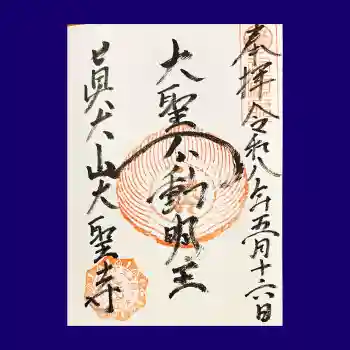 奉拝 令和八年五月十六日
大聖不動明王
犬山大聖寺